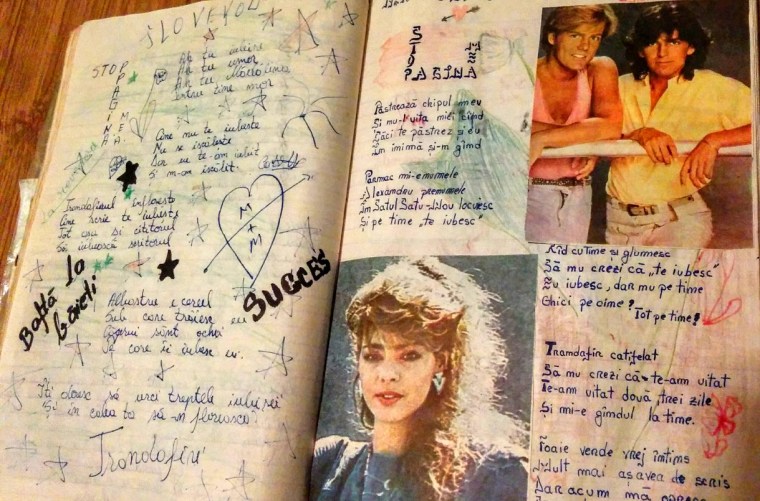 I LOVE YOU
STOP PAGINA MEA
Ah tu iubire
Ah tu
Ah tu
mor
Cine nu te iubeste
Nu se
Dar eu te-am iubit
Si m-am iscălit.
infloreste
Cine te iubeste
Tot si cititorul
Să iubească
M
+
M
Baftă la
băieti
SUCCES
Albastru e cerul
Sub care trăiesc eu
sunt ochii
care ii iubesc eu.
Iti doresc să urci treptele iubirii
Si in calea ta să
Trandafiri
STOP
PAGINA
Păstrează chipul meu
Și nu-l uita nici cînd
Căci te păstrez și eu
În inimă și-n gînd
mi-e numele
Alexandru prenumele
În Satul Satu-Nou locuesc
Și pe tine "te iubesc"
Rîd cu tine și glumesc
Să nu crezi că "te iubesc"
Eu iubesc, dar nu pe tine
Ghici pe cine? Tot pe tine!
Trandafir catifelat
Să nu crezi că te-am uitat
Te-am uitat două, trei zile
Și mi-e gîndul la tine.
Foaie verde vrej întins
Mult mai aș avea de scris
Dar acum